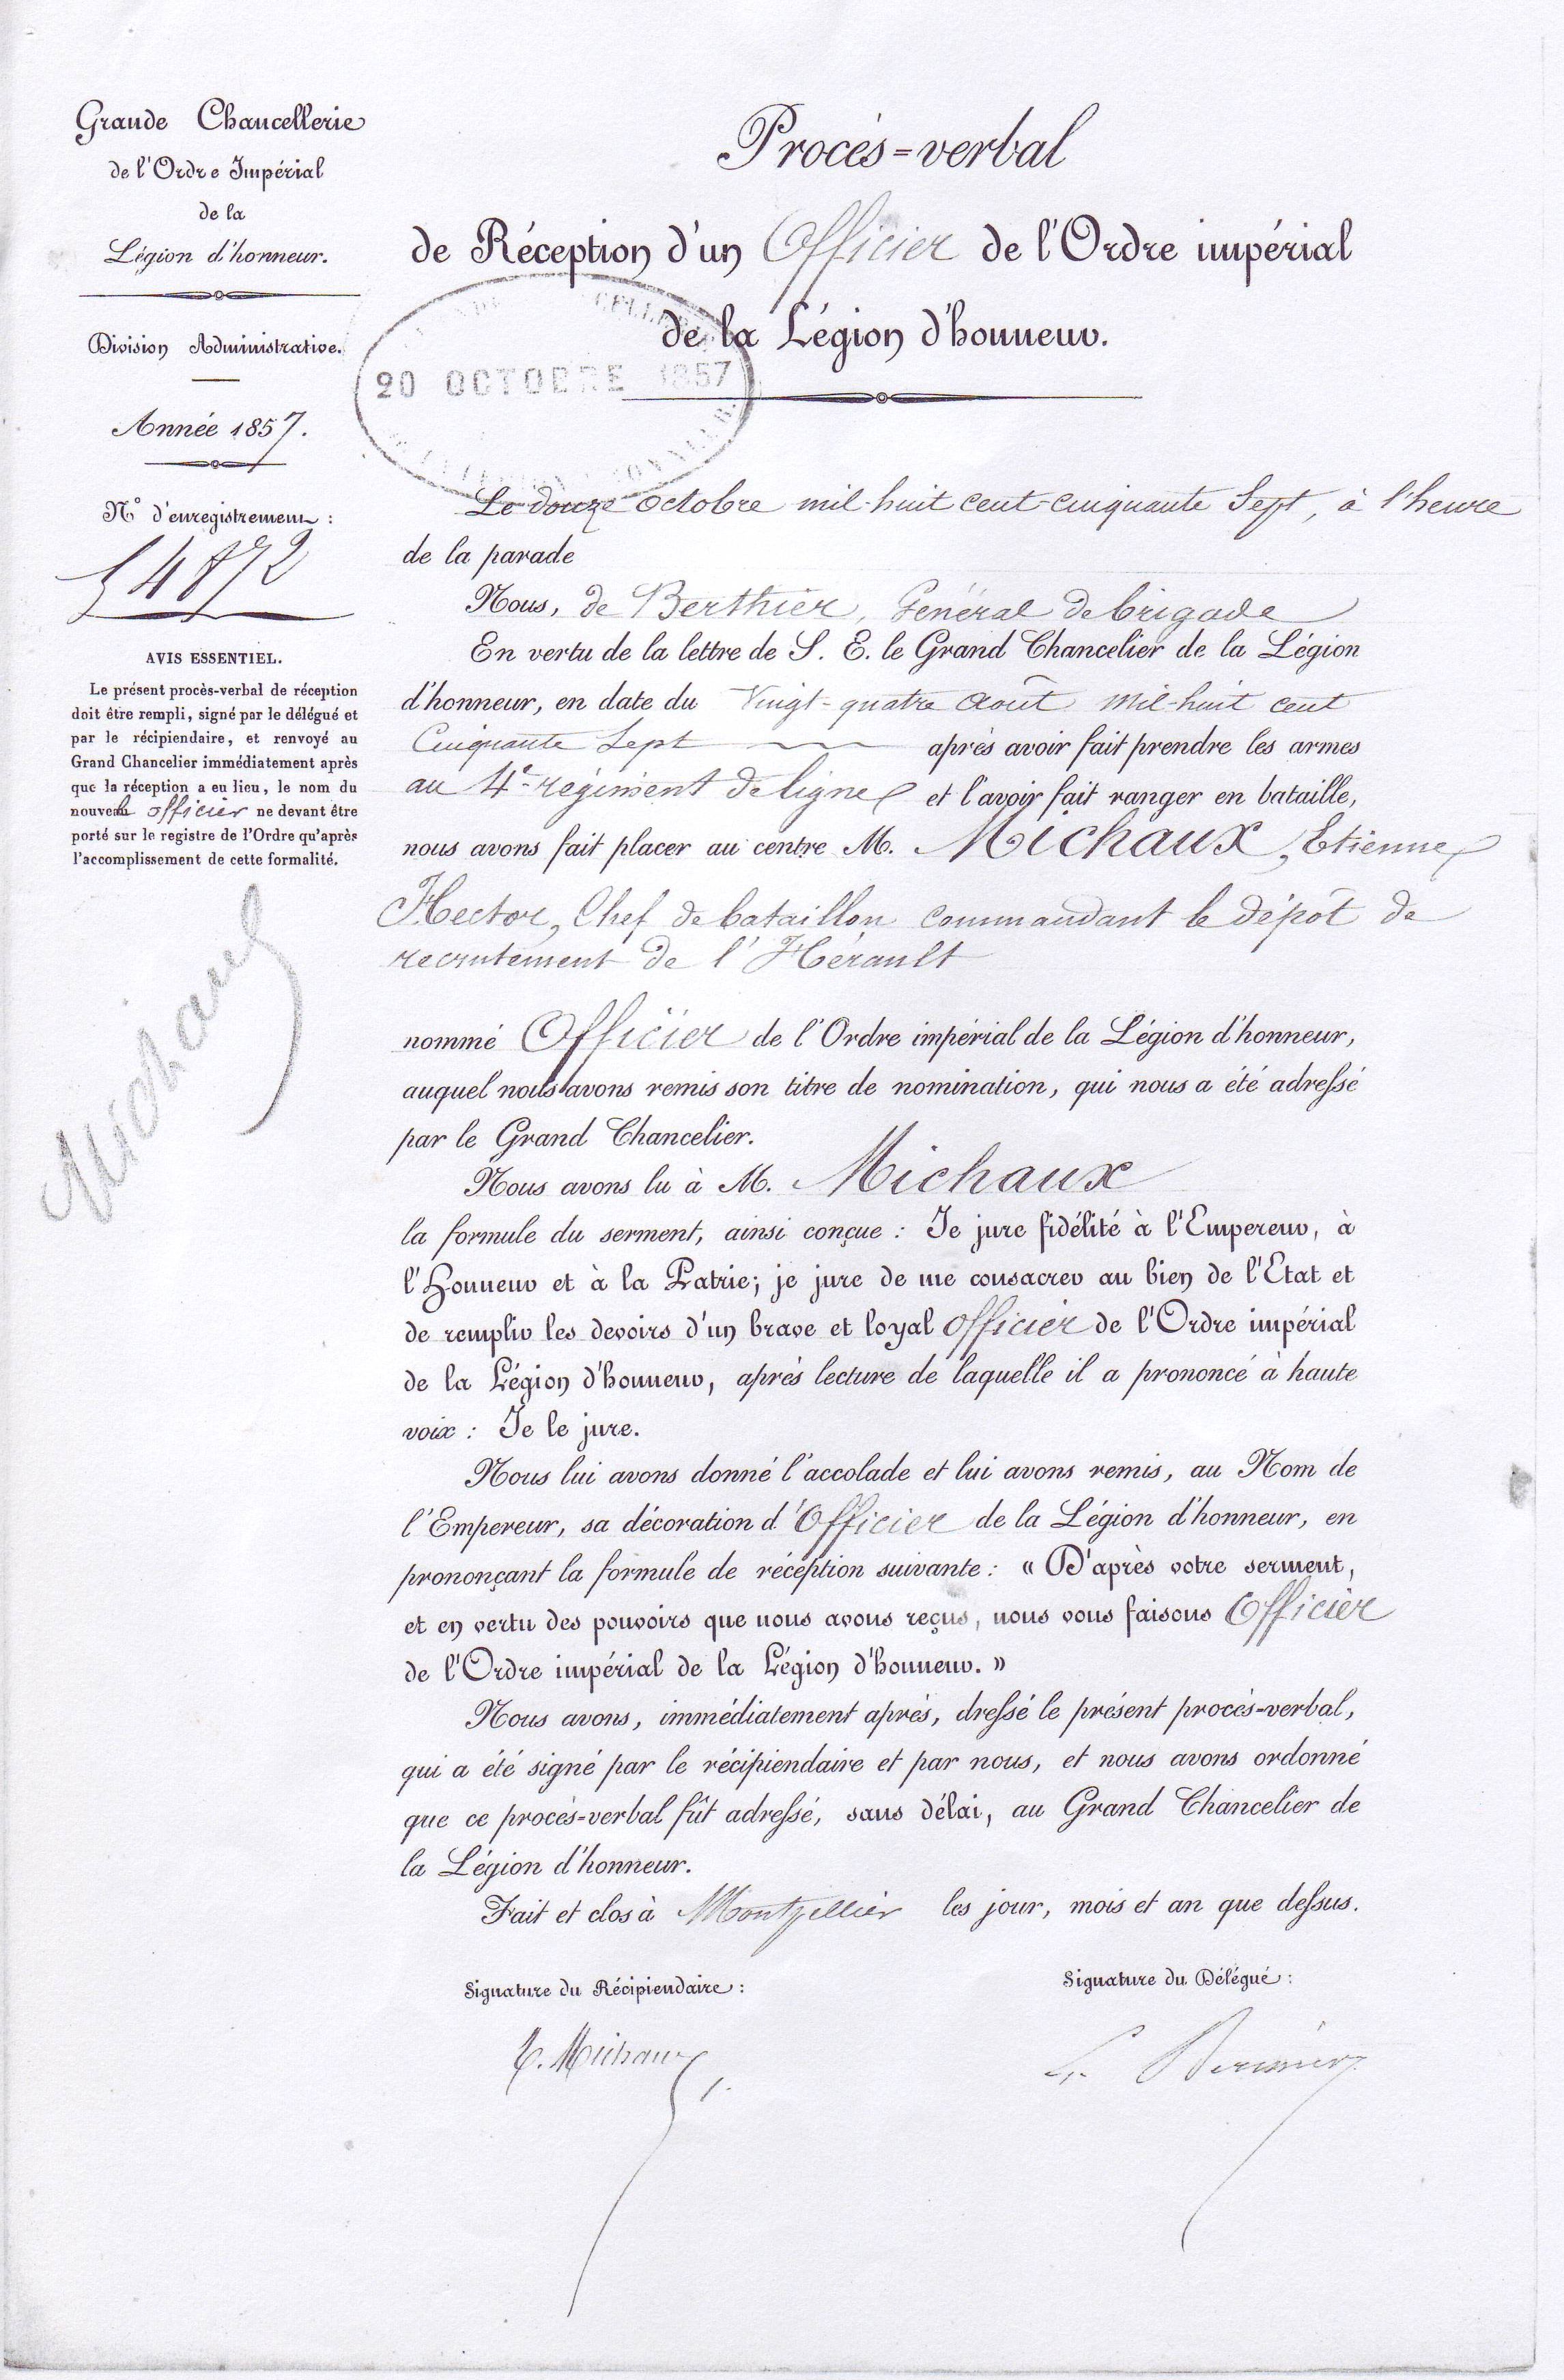 Grande Chancellerie
de l'Ordre Impérial
de la
Légion d'honneur.
Division Administrative.
Année 1857.
N° d'enregistrement :
54872
AVIS ESSENTIEL.
Le présent procès-verbal de réception
doit être rempli, signé par le délégué et
par le récipiendaire, et renvoyé au
Grand Chancelier immédiatement après
que la réception a eu lieu, le nom du
nouvel officier ne devant être
porté sur le registre de l'Ordre qu'après
l'accomplissement de cette formalité.
Michaux
Procès=verbal
de Réception d'un Officier de l'Ordre impérial
de la Légion d'honneur.
20 OCTOBRE 1857
Le douze octobre mil-huit cent-cinquante Sept, à l'heure
de la parade
Nous, de Berthier, Général de brigade
En vertu de la lettre de S. E. le Grand Chancelier de la Légion
d'honneur, en date du Vingt-quatre août mil-huit cent
Cinquante Sept après avoir fait prendre les armes
au 4e régiment de ligne et l'avoir fait ranger en bataille,
nous avons fait placer au centre M. Michaux, Etienne
Hector, Chef de bataillon commandant le dépôt de
recrutement de l'Hérault
nommé Officier de l'Ordre impérial de la Légion d'honneur,
auquel nous avons remis son titre de nomination, qui nous a été adressé
par le Grand Chancelier.
Nous avons lu à M. Michaux
la formule du serment, ainsi conçue : Je jure fidélité à l'Empereur, à
l'Honneur et à la Patrie; je jure de me consacrer au bien de l'Etat et
de remplir les devoirs d'un brave et loyal officier de l'Ordre impérial
de la Légion d'honneur, après lecture de laquelle il a prononcé à haute
voix : Je le jure.
Nous lui avons donné l'accolade et lui avons remis, au Nom de
l'Empereur, sa décoration d'Officier de la Légion d'honneur, en
prononçant la formule de réception suivante : « D'après votre serment,
et en vertu des pouvoirs que nous avons reçus, nous vous faisons Officier
de l'Ordre impérial de la Légion d'honneur. »
Nous avons, immédiatement après, dressé le présent procès-verbal,
qui a été signé par le récipiendaire et par nous, et nous avons ordonné
que ce procès-verbal fût adressé, sans délai, au Grand Chancelier de
la Légion d'honneur.
Fait et clos à Montpellier les jour, mois et an que dessus.
Signature du Récipiendaire :
Signature du Délégué :
E. Michaux